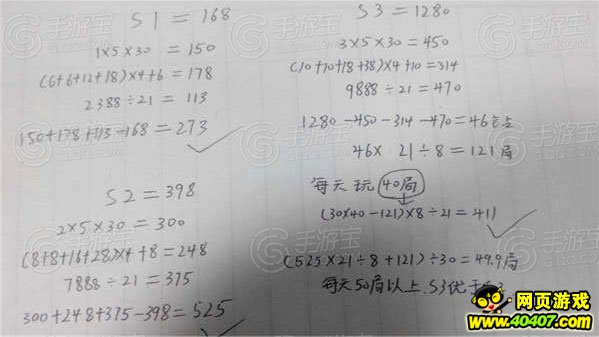 S1 = 168
1×5×30 = 150
(6+6+12+18)×4+6 = 178
2388÷21 = 113
150+178+113-168=273
S2 = 398
2×5×30 = 300
(8+8+16+28)×4+8=248
7888÷21=375
300+248+375-398=525
S3 = 1280
3×5×30=450
(10+10+18+38)×4+10=314
9888÷21=470
1280-450-314-470=46
46×21÷8=121局
每天玩40局
(30×40-121)×8÷21=411
(525×21÷8+121)÷30=49.9局
每天50局以上,S3优于S2
手游宝
G.QQ.COM
手游宝
G.QQ.COM
手游宝
G.QQ.COM
手游宝
G.QQ.COM
网页游戏
www.40407.com